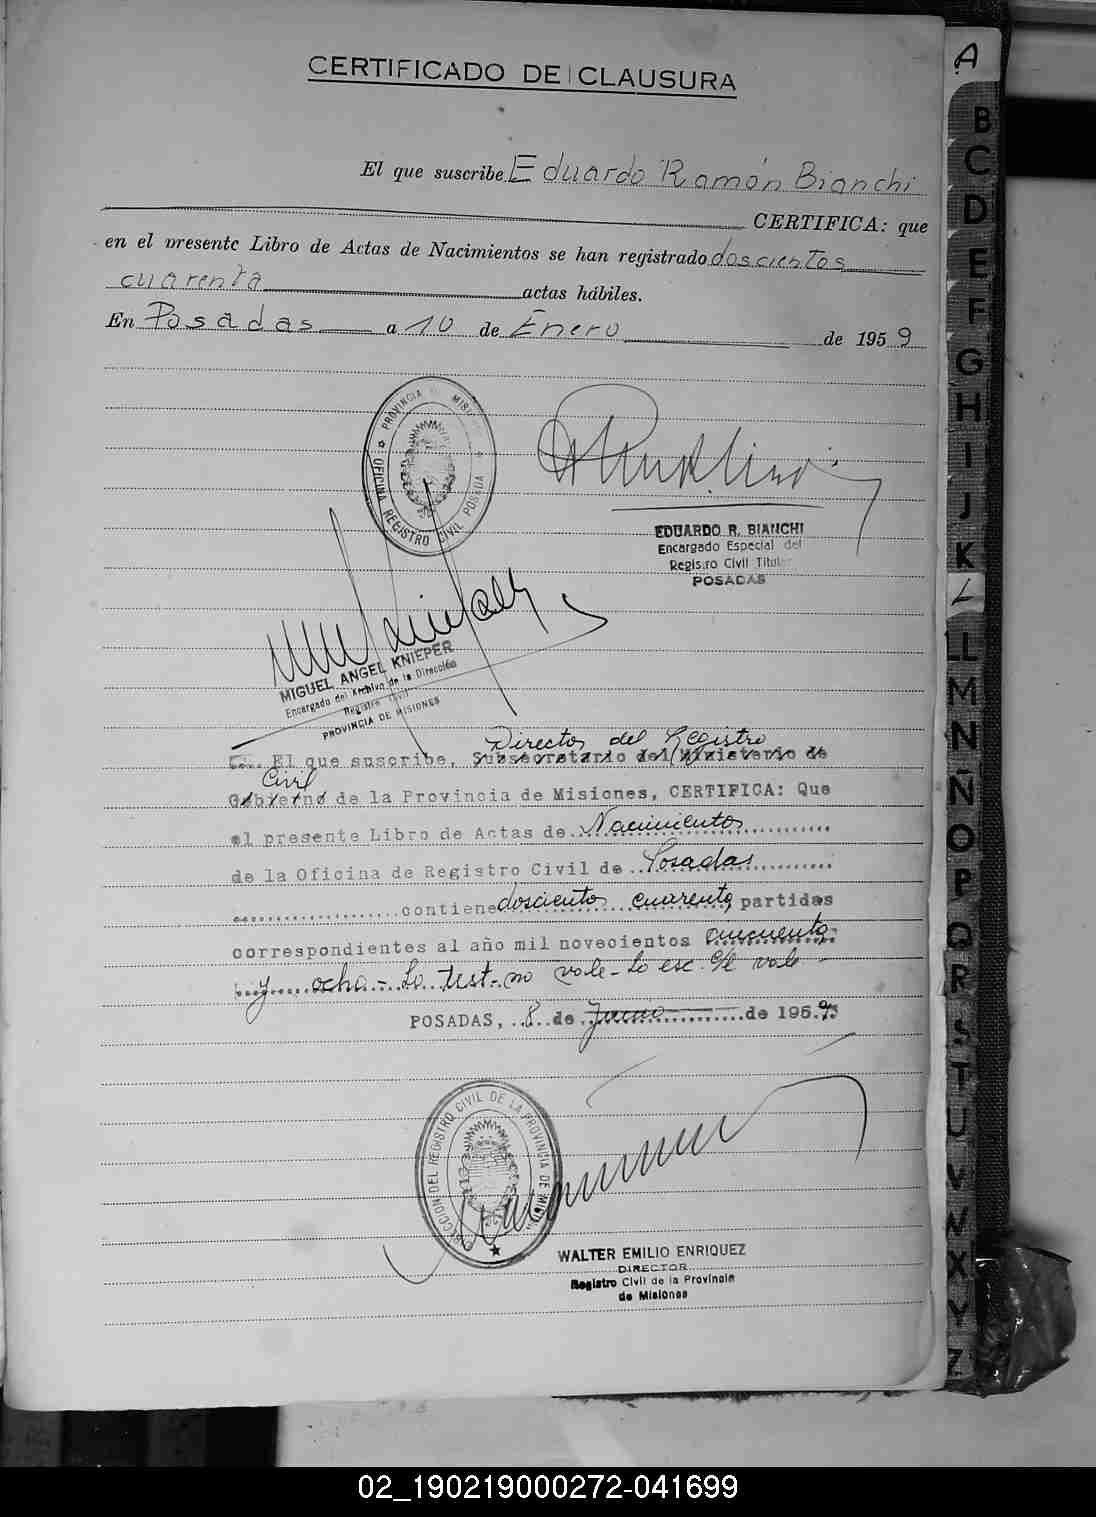 CERTIFICADO DE CLAUSURA
A
B
C
D
E
F
G
H
I
J
K
L
LL
M
N
Ñ
O
P
Q
R
S
T
U
V
W
X
Y
Z
El que suscribe Eduardo Ramón Bianchi
CERTIFICA: que
en el presente Libro de Actas de Nacimientos se han registrado doscientos
cuarenta actas hábiles.
En Posadas a 10 de Enero de 1959
PROVINCIA DE MISIONES
OFICINA REGISTRO CIVIL POSADAS
EDUARDO R. BIANCHI
Encargado Especial del
Registro Civil Titular
POSADAS
MIGUEL ANGEL KNIEPER
Encargado del Archivo de la Dirección
Registro Civil
PROVINCIA DE MISIONES
Director del Registro
El que suscribe, Subsecretario del Ministerio de
Civil
Gobierno de la Provincia de Misiones, CERTIFICA: Que
el presente Libro de Actas de Nacimientos
de la Oficina de Registro Civil de Posadas
contiene doscientos cuarenta partidas
correspondientes al año mil novecientos cincuenta
y ocho - Lo test. no vale - Lo esc. vale -
POSADAS, 8 de Junio de 1959
DIRECCION DEL REGISTRO CIVIL DE LA PROVINCIA DE MISIONES
WALTER EMILIO ENRIQUEZ
DIRECTOR
Registro Civil de la Provincia
de Misiones
02_190219000272-041699